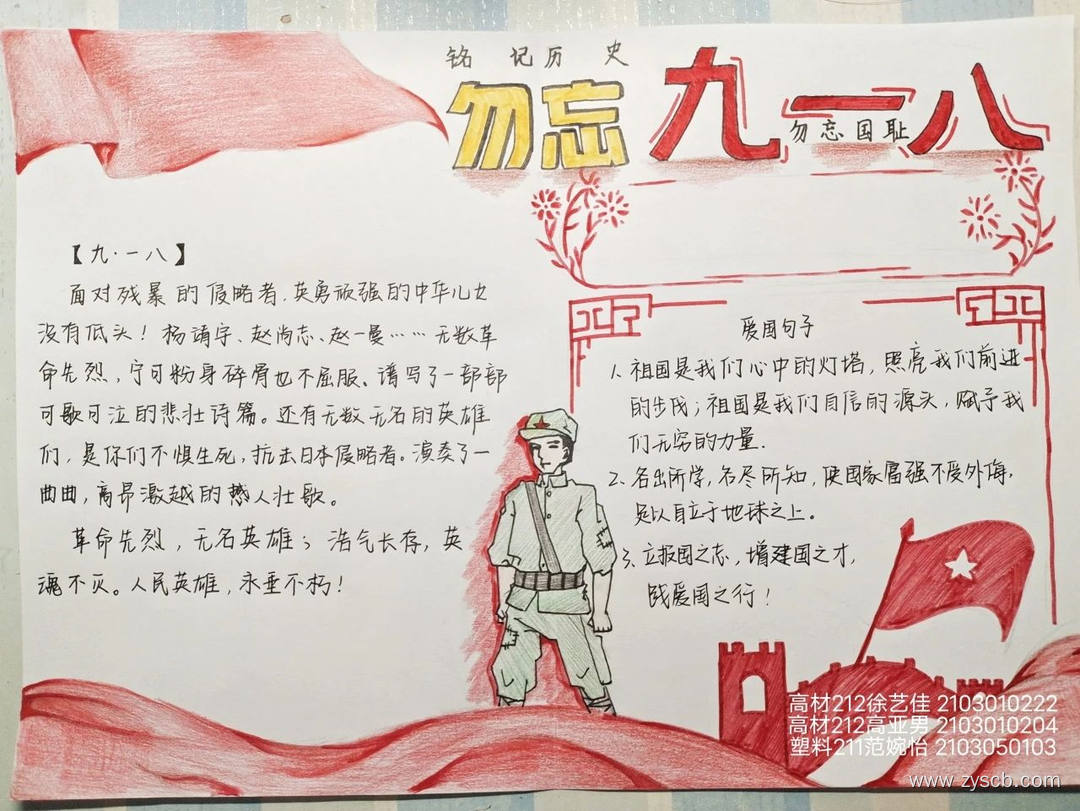 铭记历史
勿忘九一八
勿忘国耻
【九·一八】
面对残暴的侵略者,英勇顽强的中华儿女
没有低头！杨靖宇、赵尚志、赵一曼……无数革
命先烈,宁可粉身碎骨也不屈服。谱写了一部部
可歌可泣的悲壮诗篇。还有无数无名的英雄
们,是你们不惧生死,抗击日本侵略者。演奏了一
曲曲,高昂激越的撼人壮歌。
革命先烈,无名英雄；浩气长存,英
魂不灭。人民英雄,永垂不朽！
爱国句子
1.祖国是我们心中的灯塔,照亮我们前进
的步伐；祖国是我们自信的源头,赋予我
们无穷的力量.
2.各出所学,各尽所知,使国家富强不受外侮,
足以自立于地球之上。
3.立报国之志,增建国之才,
践爱国之行！
高材212徐艺佳 2103010222
高材212高亚男 2103010204
塑料211范婉怡 2103050103
www.zyscb.com